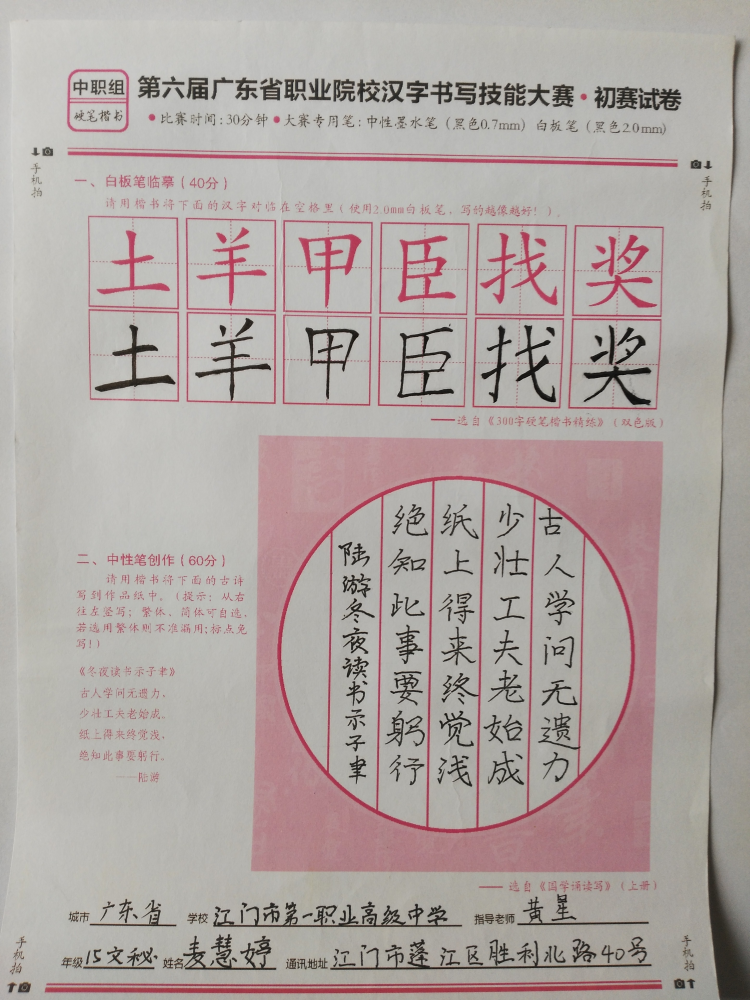 中职组
硬笔楷书
第六届广东省职业院校汉字书写技能大赛·初赛试卷
●比赛时间:30分钟●大赛专用笔:中性墨水笔（黑色0.7mm）白板笔（黑色2.0mm）
手机拍
手机拍
一、白板笔临摹（40分）
请用楷书将下面的汉字对临在空格里（使用2.0mm白板笔，写的越像越好！）。
土羊甲臣找奖
土羊甲臣找奖
——选自《300字硬笔楷书精练》（双色版）
二、中性笔创作（60分）
请用楷书将下面的古诗
写到作品纸中。（提示：从右
往左竖写；繁体、简体可自选，
若选用繁体则不准漏用;标点免
写！）
《冬夜读书示子聿》
古人学问无遗力，
少壮工夫老始成。
纸上得来终觉浅，
绝知此事要躬行。
——陆游
古人学问无遗力
少壮工夫老始成
纸上得来终觉浅
绝知此事要躬行
陆游冬夜读书示子聿
——选自《国学诵读写》（上册）
城市 广东省 学校 江门市第一职业高级中学 指导老师 黄星
年级 15文秘 姓名 麦慧婷 通讯地址 江门市蓬江区胜利北路40号
手机拍
手机拍